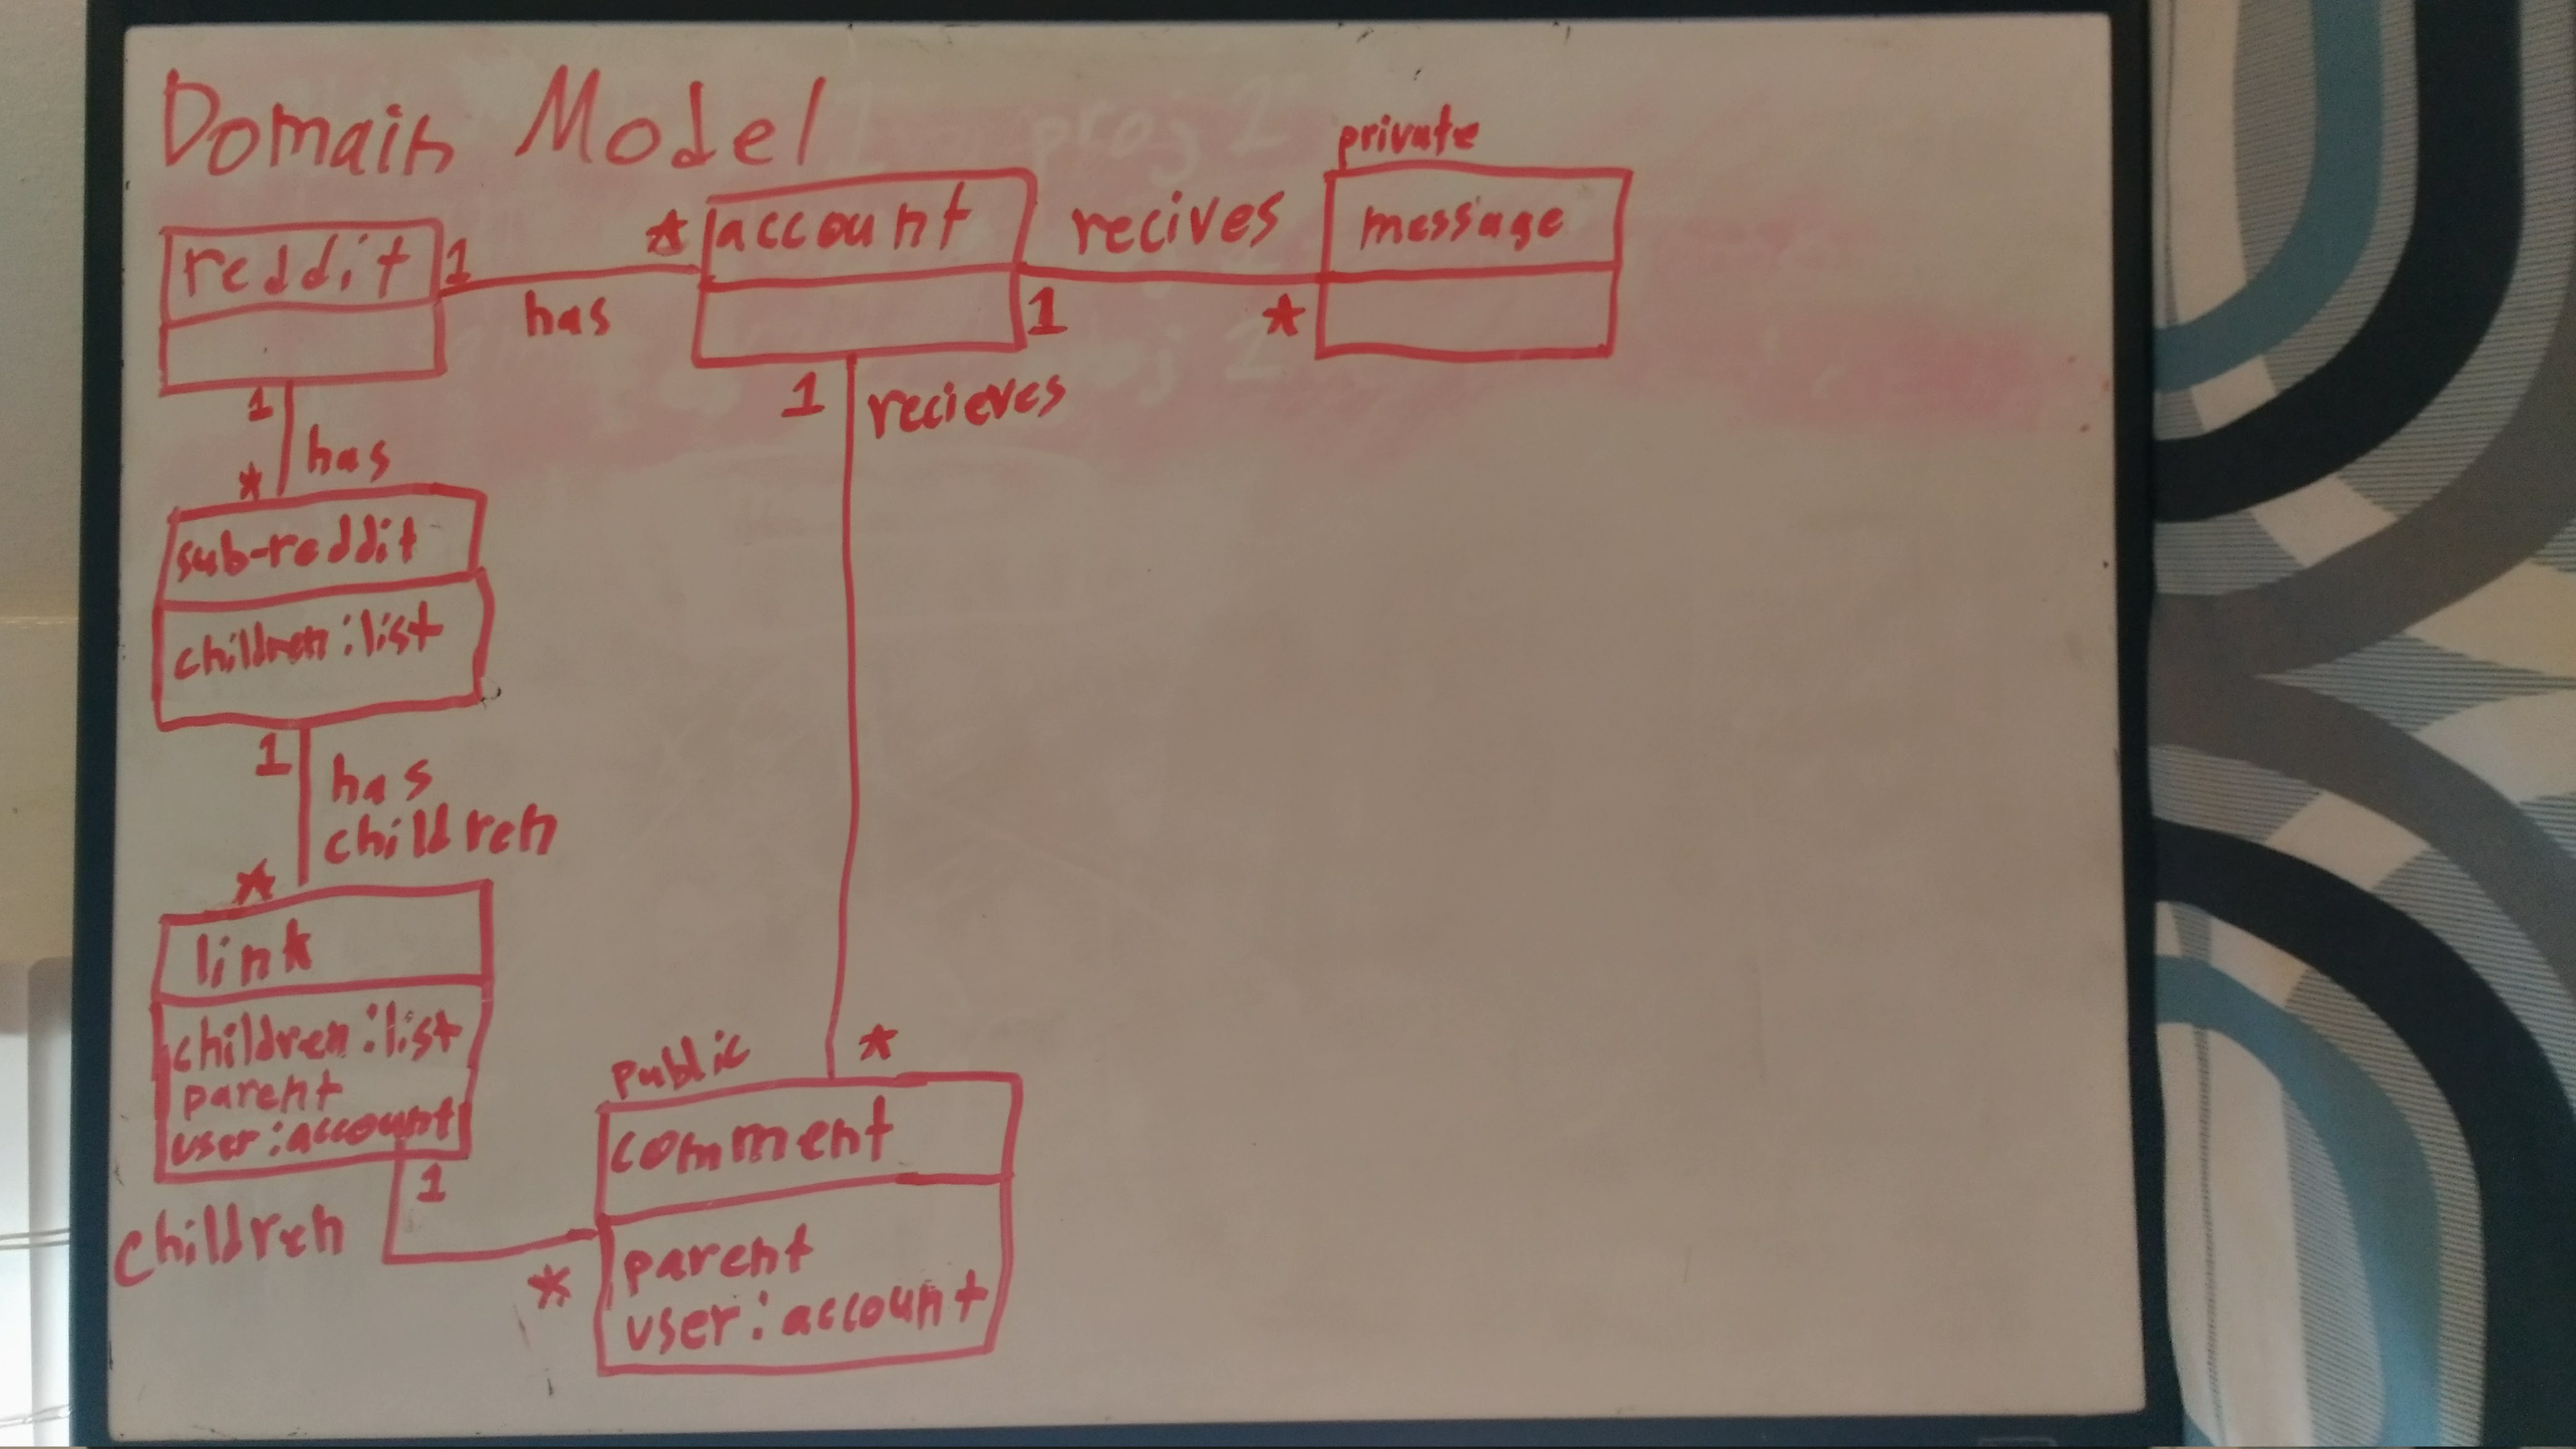 Domain Model
private
reddit
1
has
*
account
recives
1
*
message
1
has
*
1
recieves
*
sub-reddit
children:list
1
has
children
*
link
children:list
parent
user:account
1
children
*
public
comment
parent
user:account